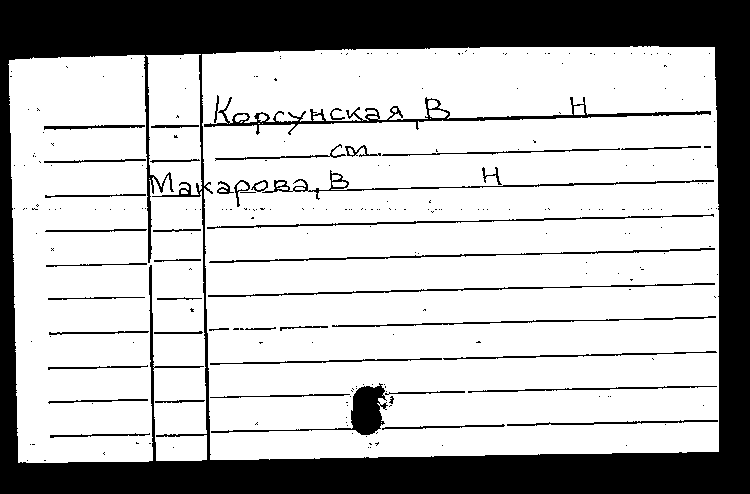 Корсунская, В Н
ст.
Макарова, В Н